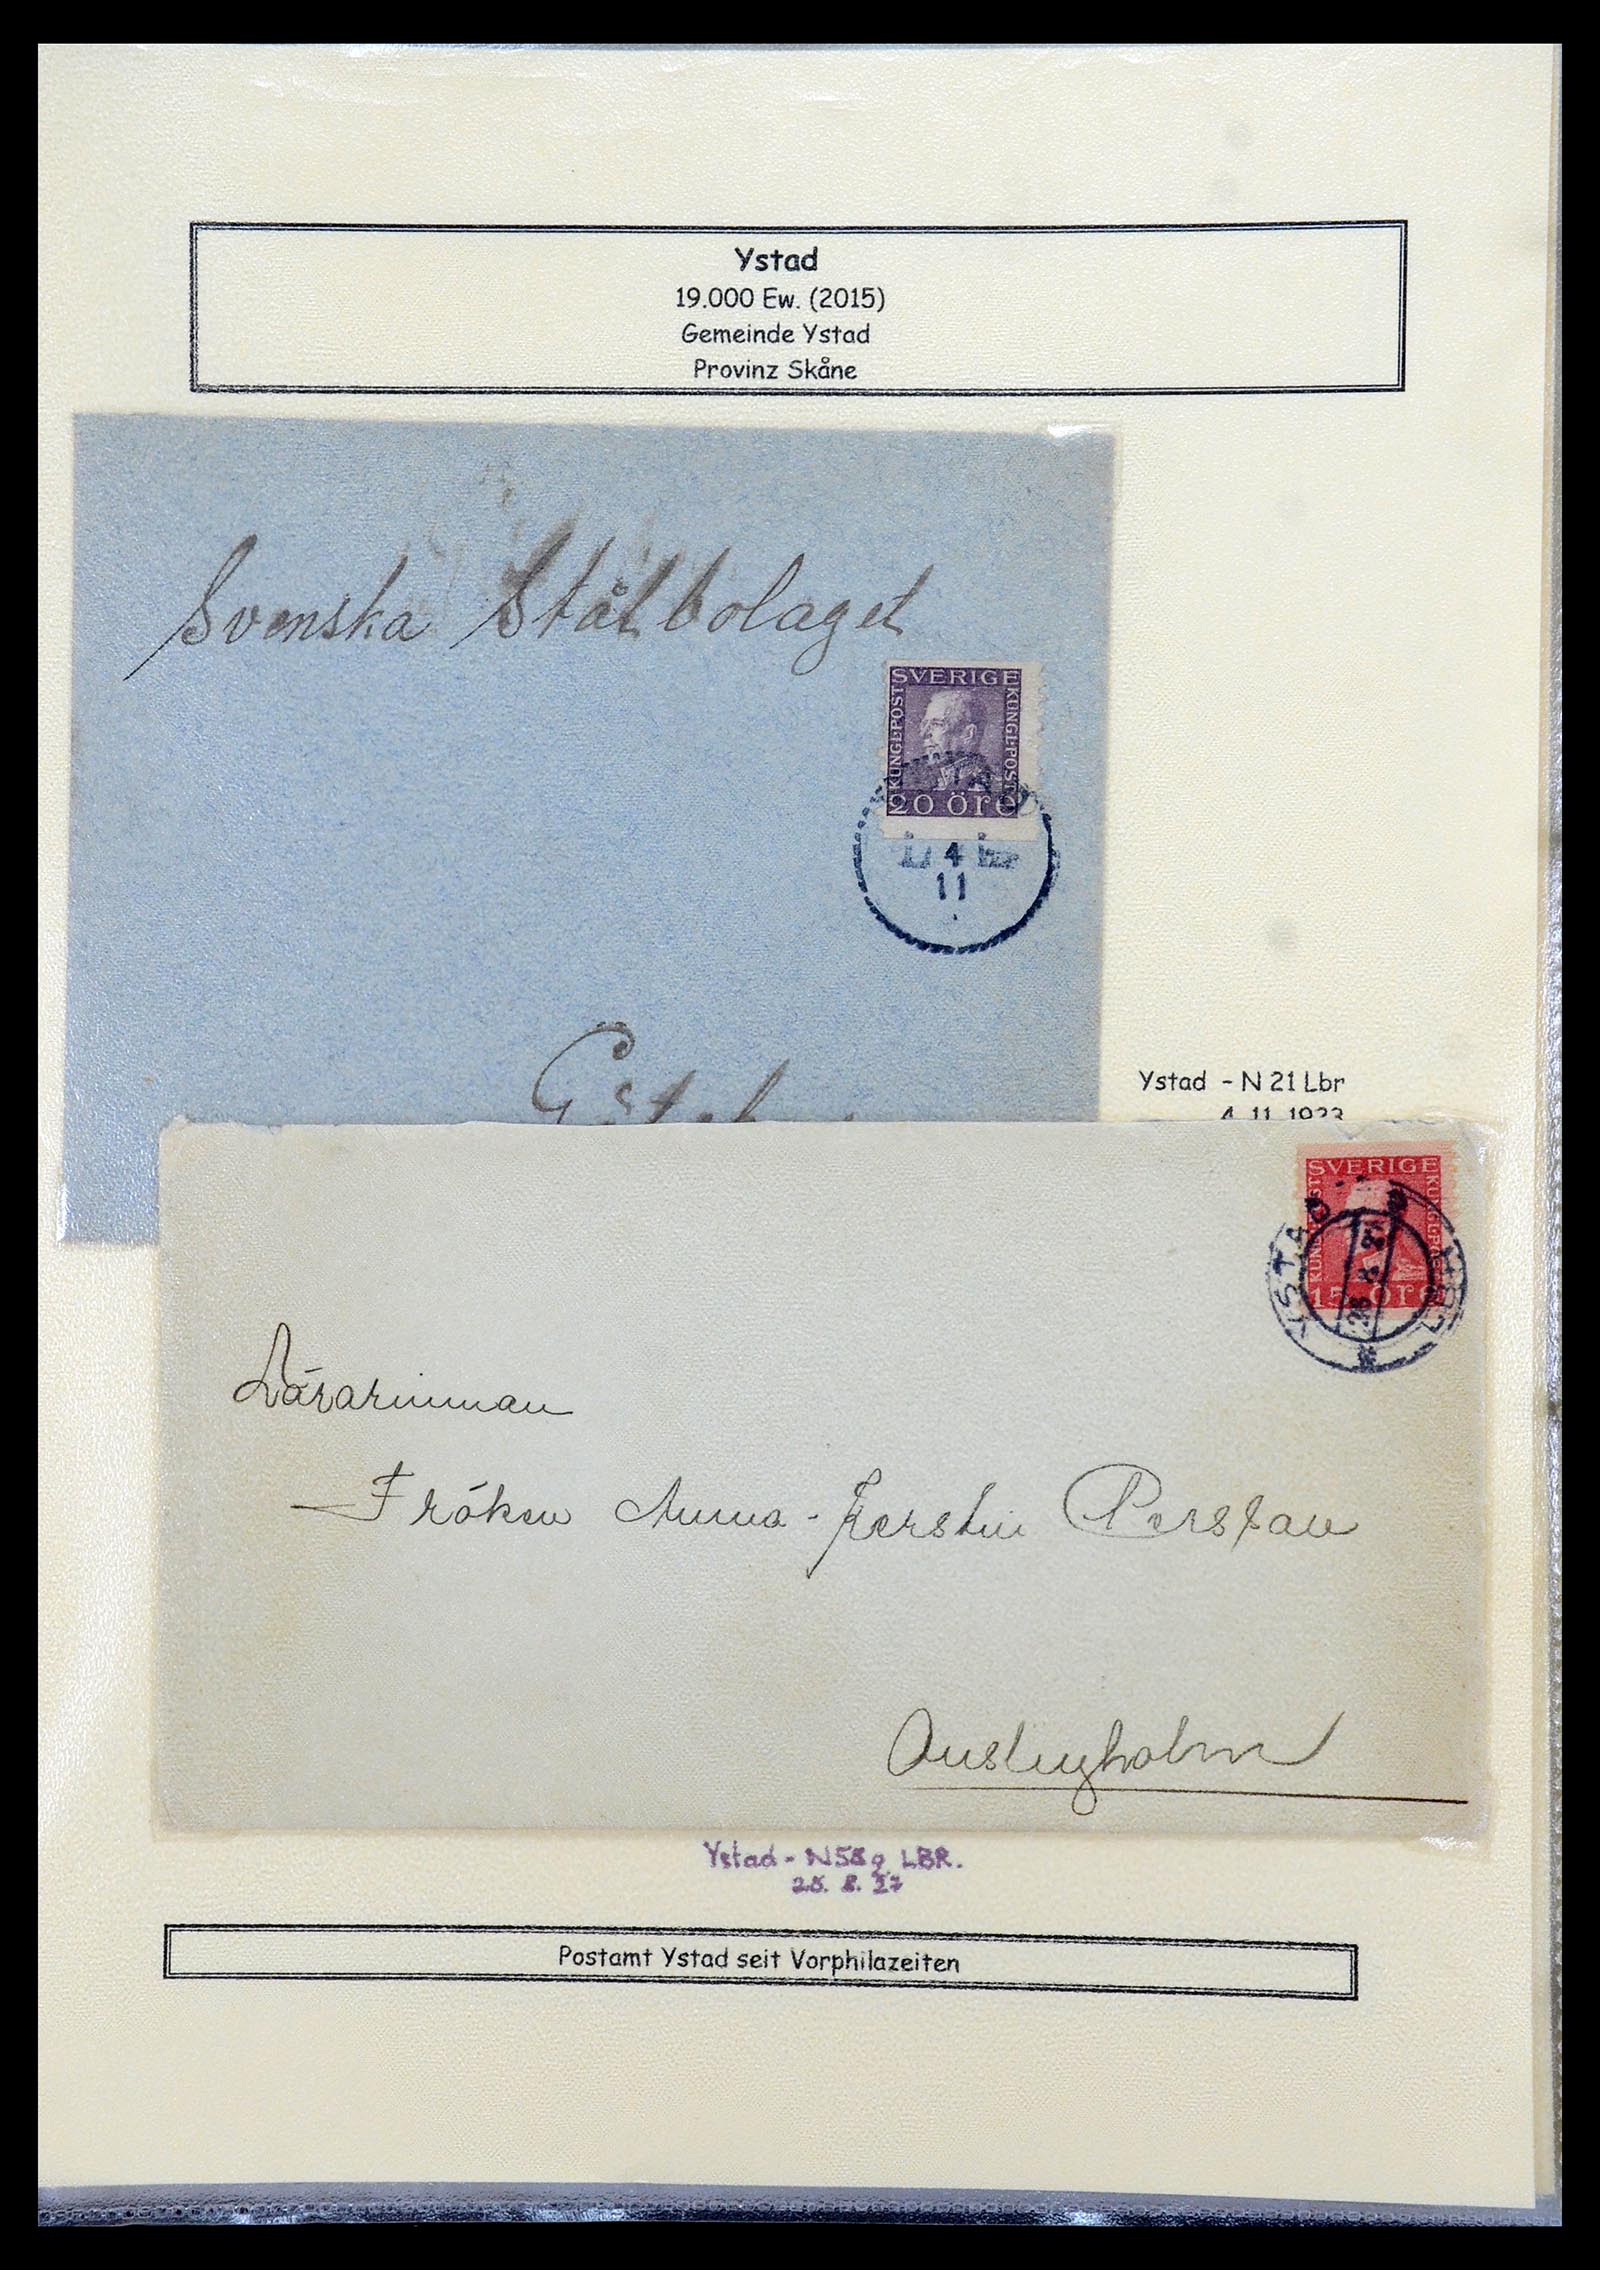 Ystad
19.000 Ew. (2015)
Gemeinde Ystad
Provinz Skåne
Svenska Stålbolaget
SVERIGE
KUNGL·POST
KUNGL·POST
20 ÖRE
4
11
Ystad - N 21 Lbr
4. 11. 1923
SVERIGE
KUNGL·POST
15 ÖRE
YSTAD
LBR
Lärarinnan
Fröken Anna-Kerstin
Ystad - N58g LBR.
Postamt Ystad seit Vorphilazeiten